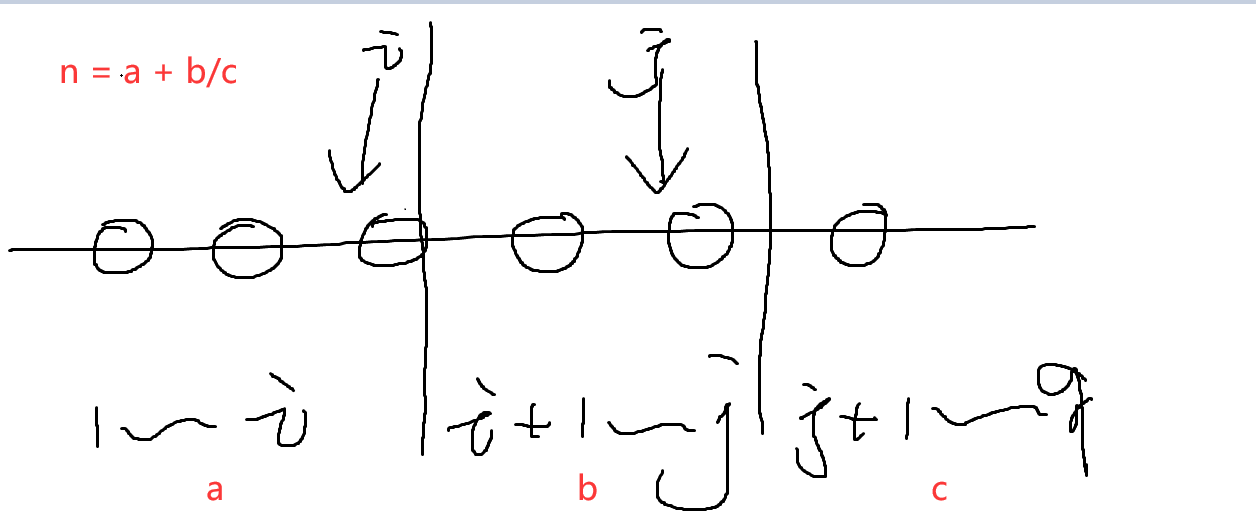 n = a + b/c
i
j
1 ~ i
i+1 ~ j
j+1 ~ 9
a
b
c